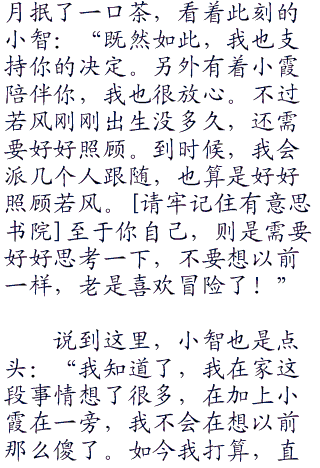 月抿了一口茶，看着此刻的
小智：“既然如此，我也支
持你的决定。另外有着小霞
陪伴你，我也很放心。不过
若风刚刚出生没多久，还需
要好好照顾。到时候，我会
派几个人跟随，也算是好好
照顾若风。[请牢记住有意思
书院]至于你自己，则是需要
好好思考一下，不要想以前
一样，老是喜欢冒险了！”
说到这里，小智也是点
头：“我知道了，我在家这
段事情想了很多，在加上小
霞在一旁，我不会在想以前
那么傻了。如今我打算，直